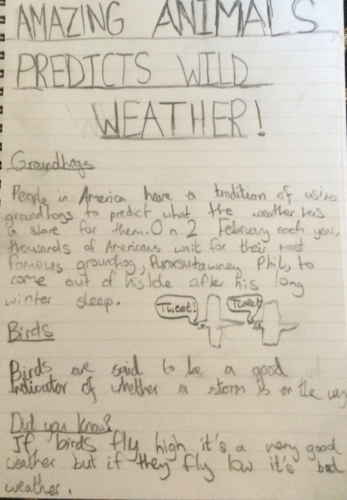 AMAZING ANIMALS
PREDICTS WILD
WEATHER!
Groundhogs
People in America have a tradition of using
groundhogs to predict what the weather has
in store for them. On 2 February each year,
thousands of Americans wait for their most
famous grouchog, Punxsutawney Phil, to
come out of his hole after his long
winter sleep.
Tweet! Tweet!
Birds
Birds are said to be a good
indicator of whether a storm is on the way
Did you know?
If birds fly high it's a very good
weather but if they fly low it's bad
weather.